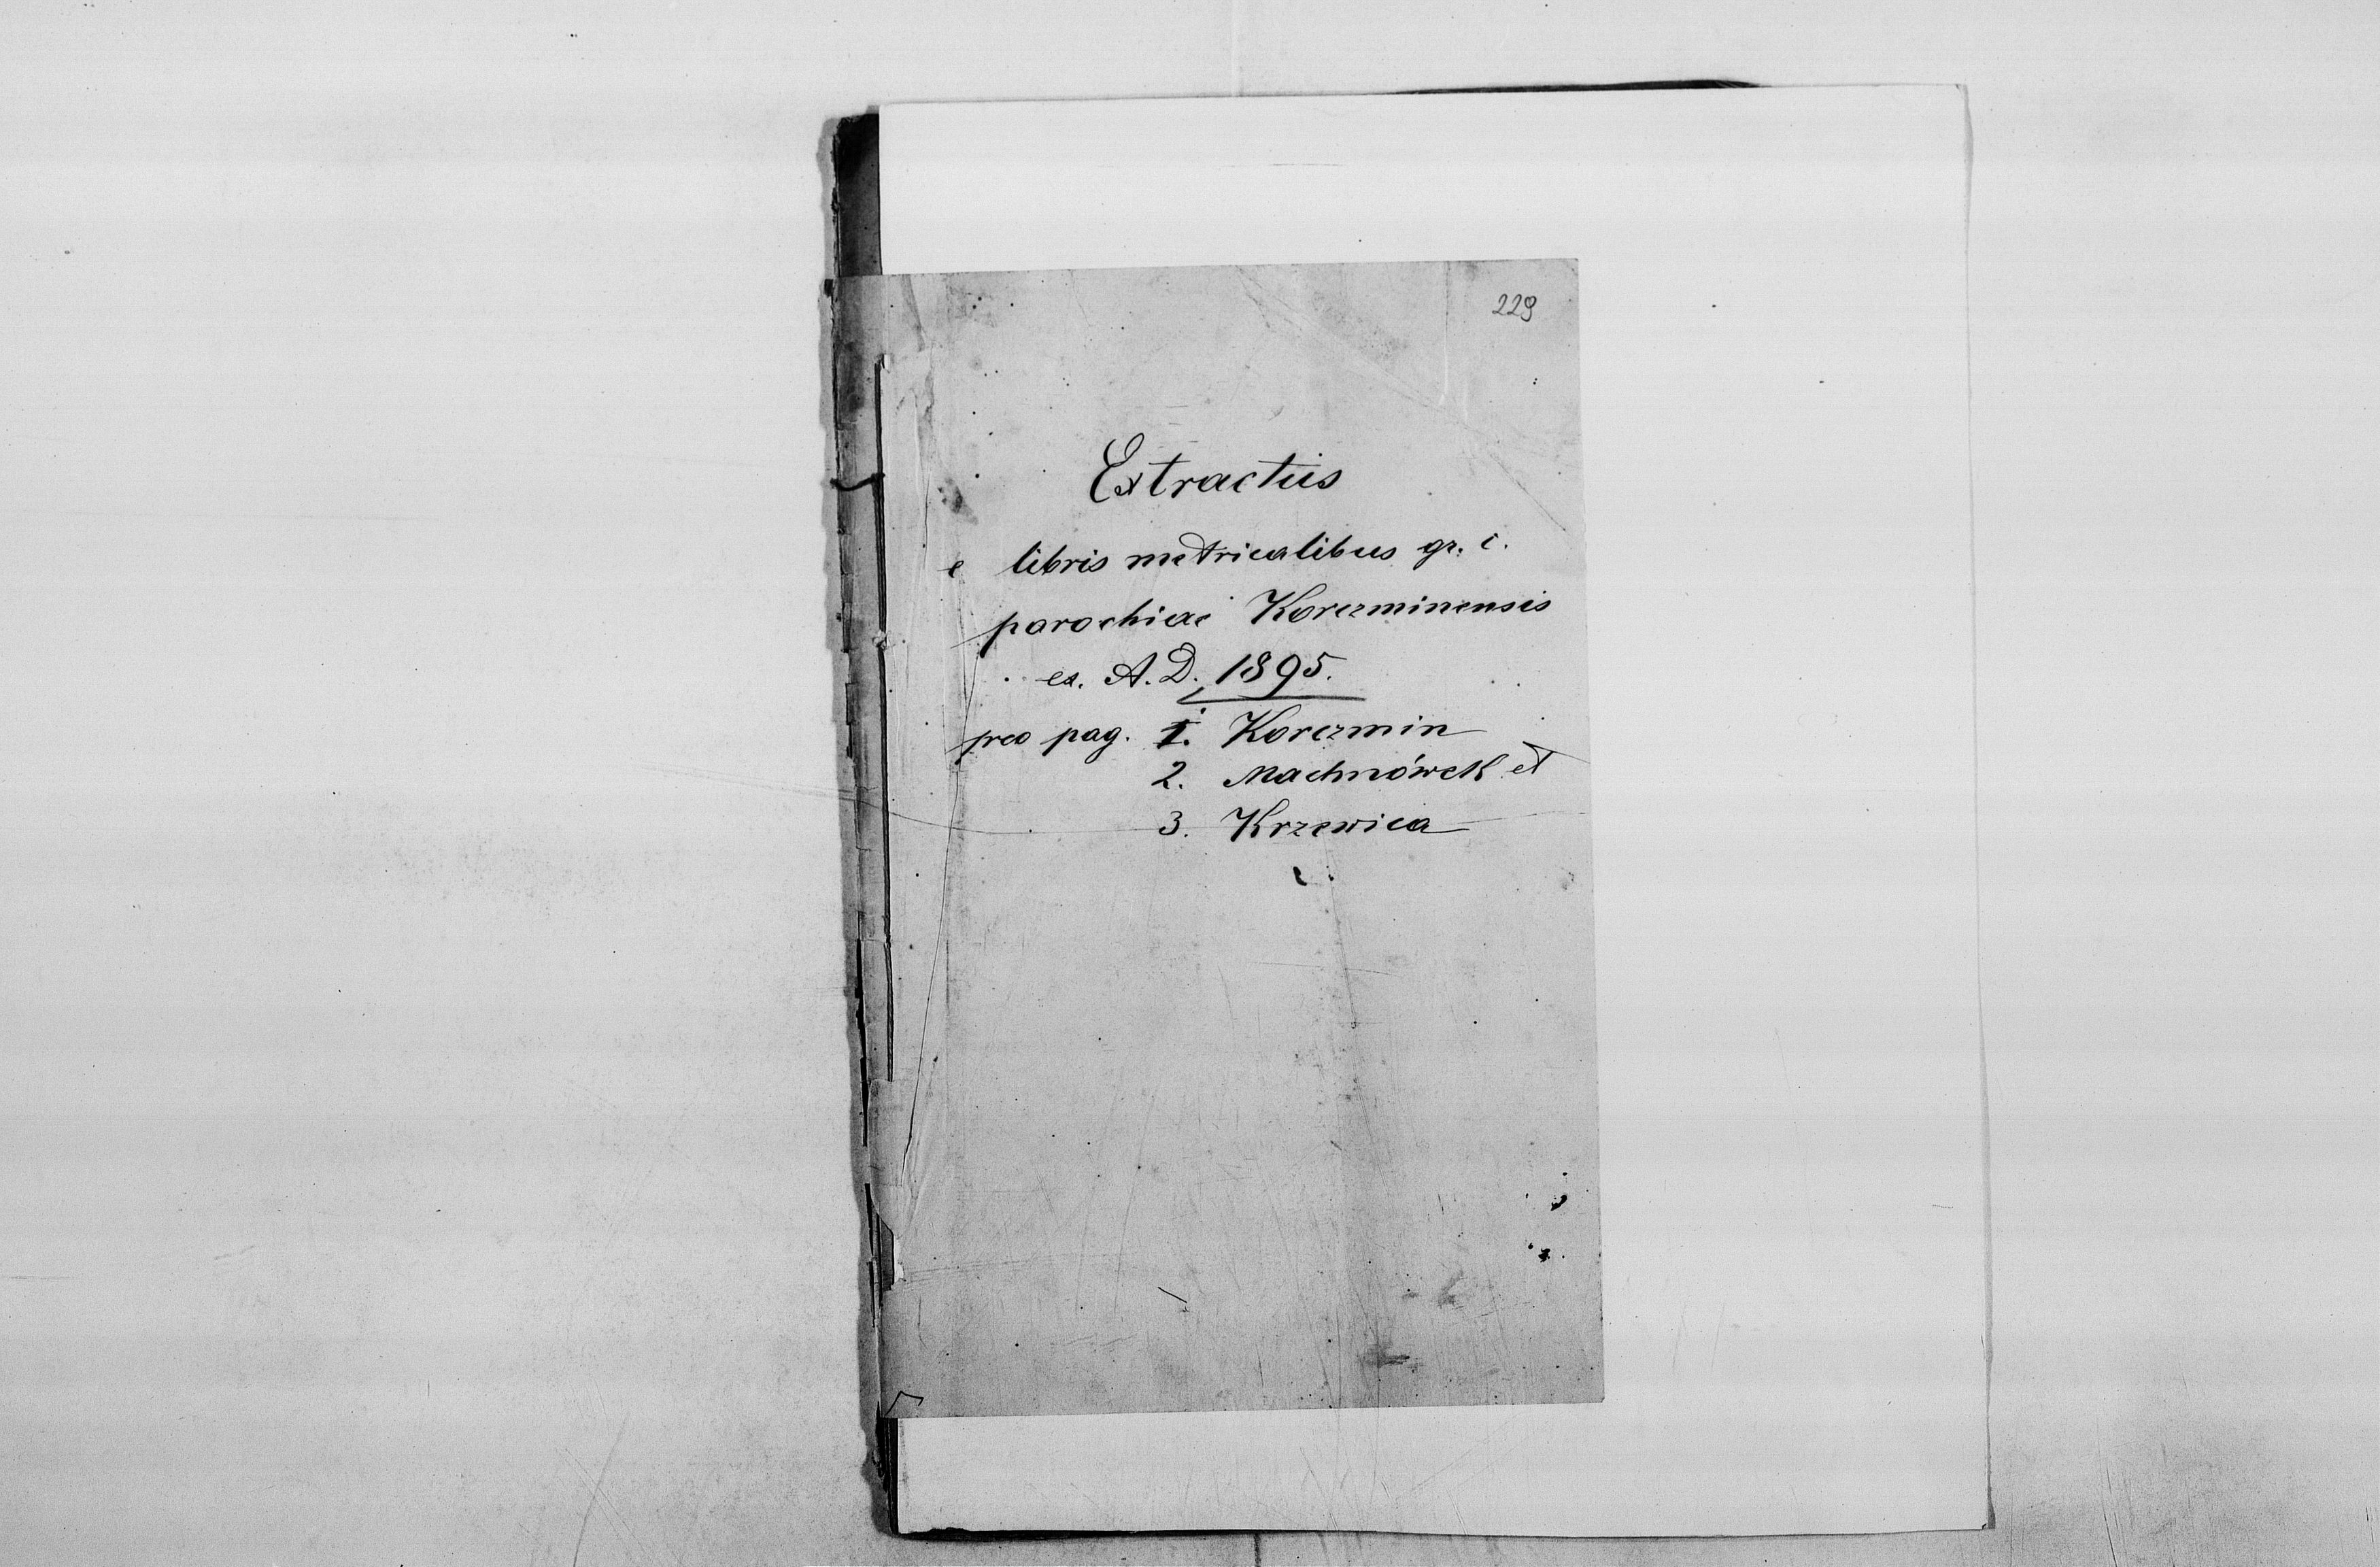 229
Extractus
e libris metricalibus gr. c.
parochiae Korczminensis
ex. A. D. 1895.
pro pag. 1. Korczmin
2. Machnówek et
3. Krzewica